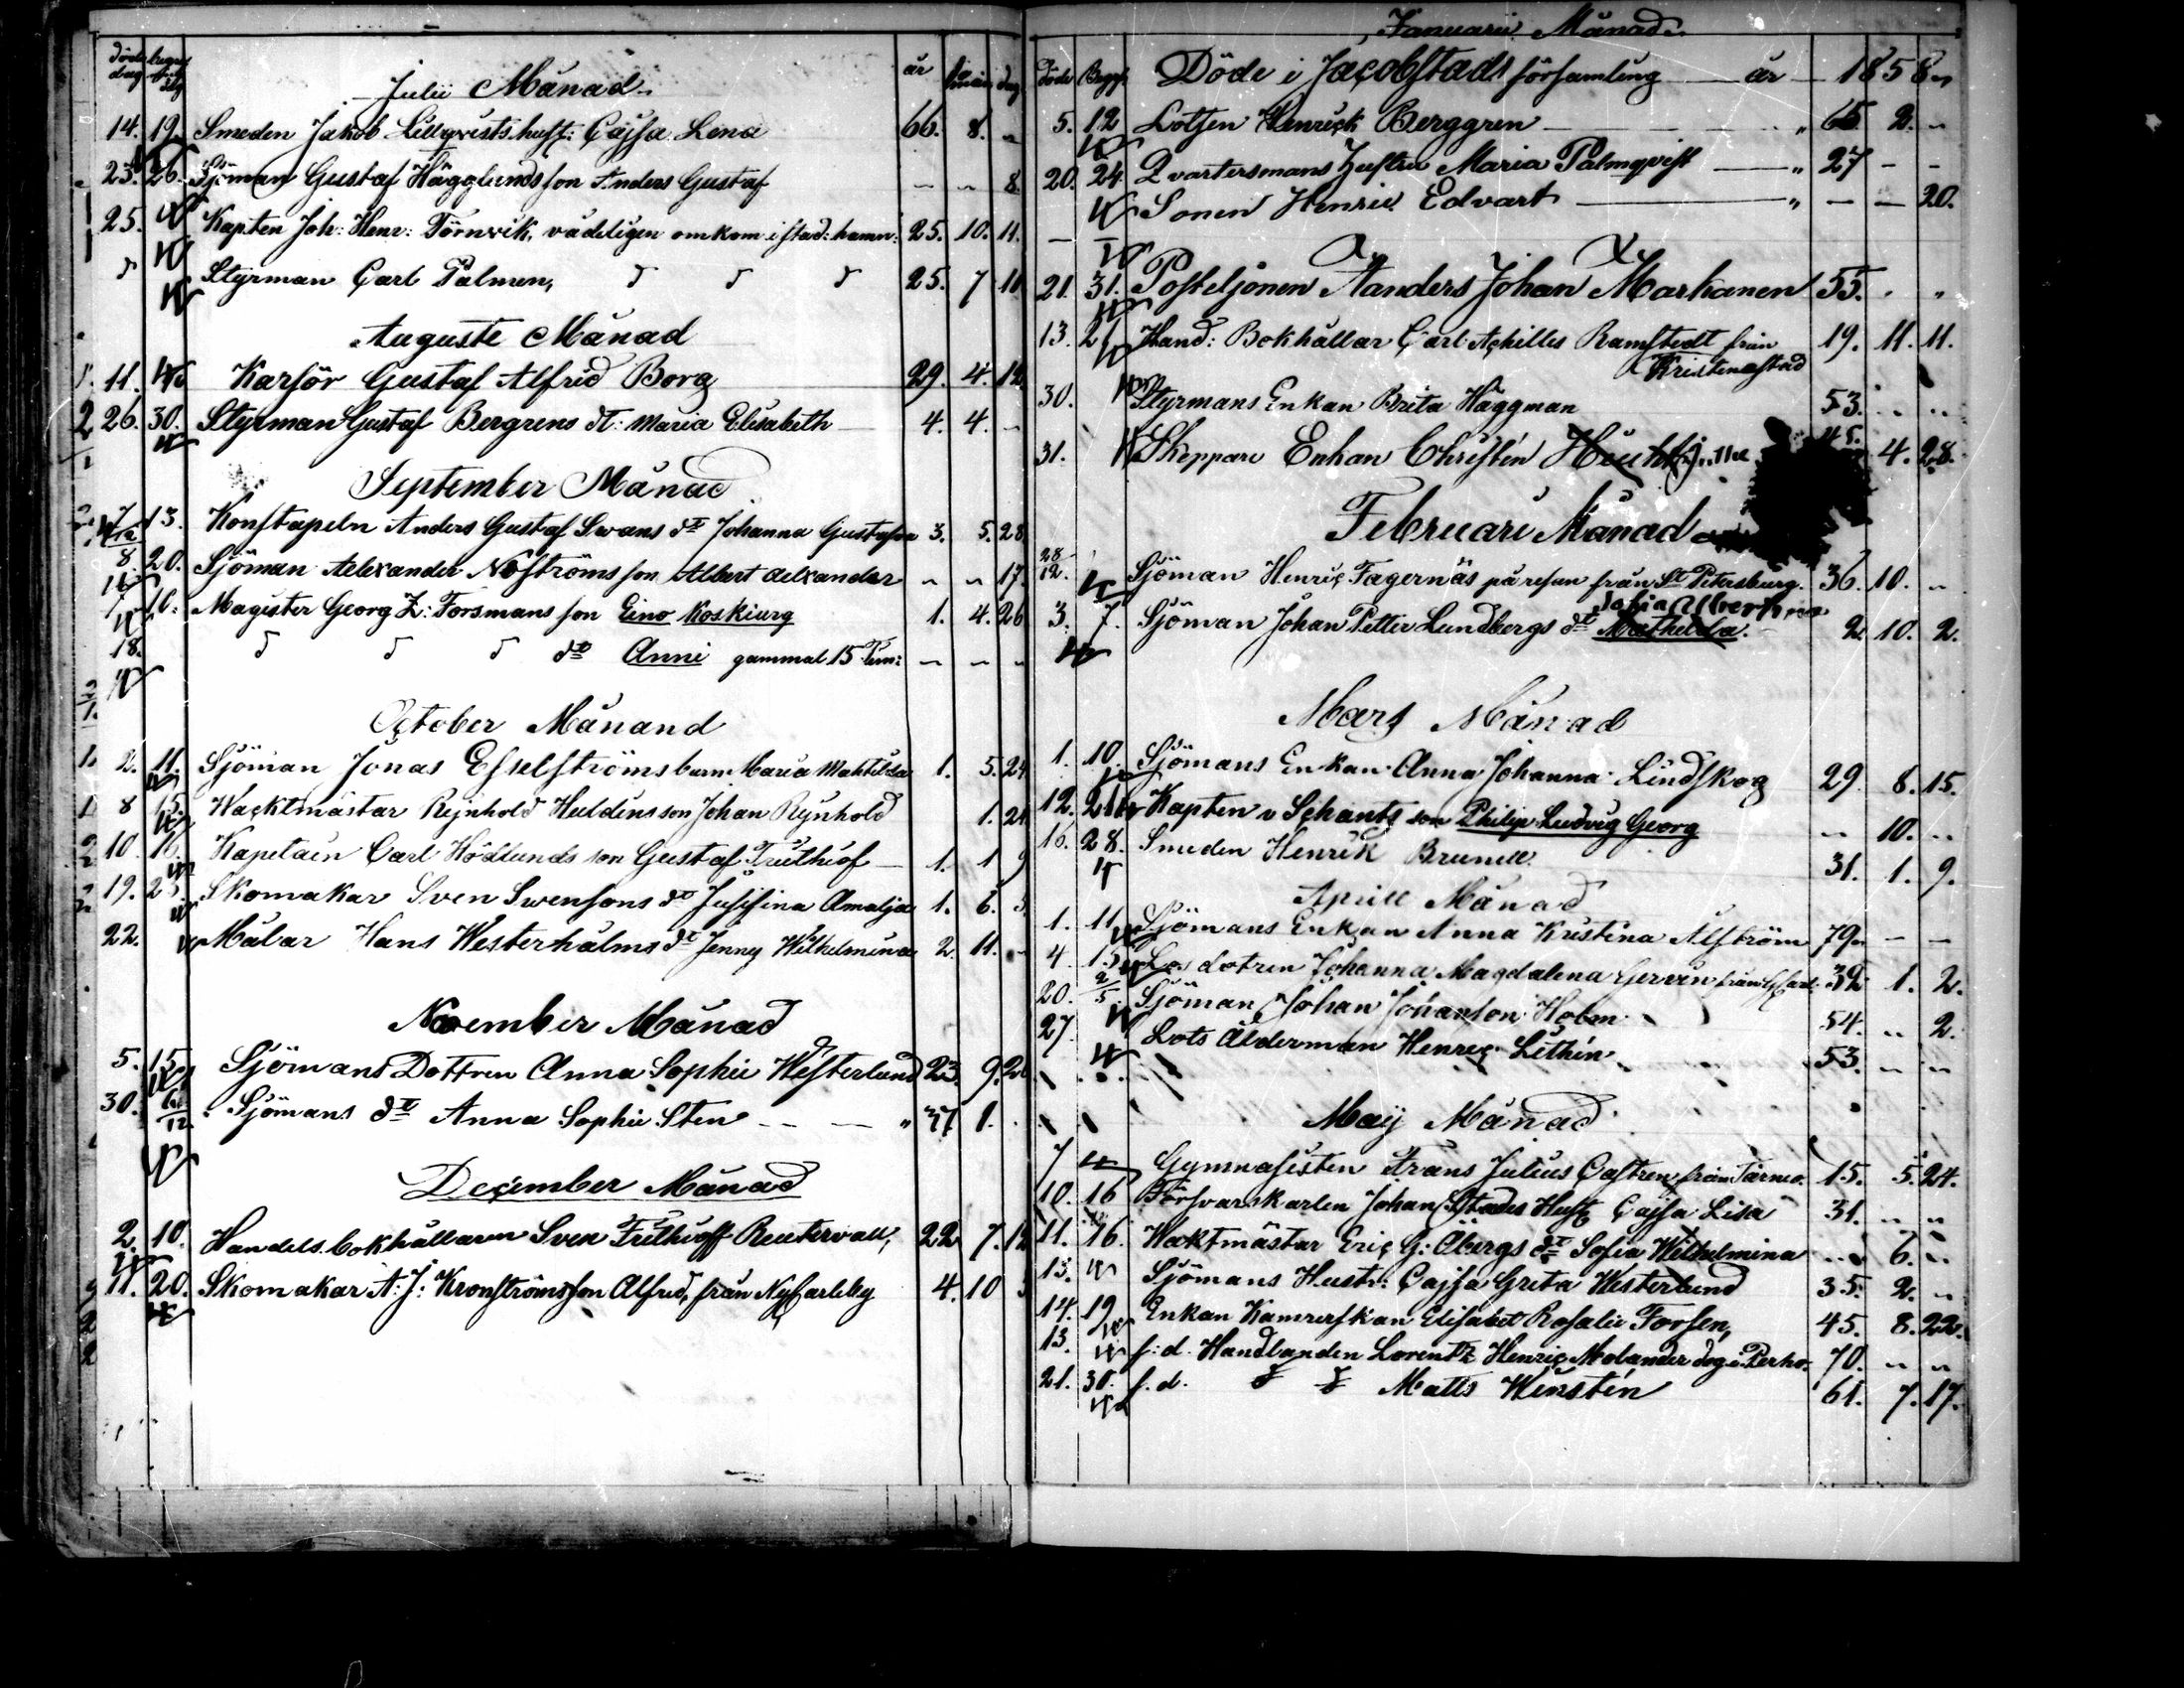 döde dag begrafn: dag år mån dag
Julii Månad
14. 19. Smeden Jakob Lillqvists hust: Cajsa Lena 66. 8. „
23. 26. Sjöman Gustaf Hägglunds son Anders Gustaf „ „ 8.
25. Kapten Joh: Henr: Törnvik, vådeligen omkom i stad: hamn: 25. 10. 11.
d Styrman Carl Palmen, d d d 25. 7 11
Auguste Månad
11. Karsör Gustaf Alfrid Borg 29. 4. 12.
26. 30. Styrman Gustaf Bergrens dt: Maria Elisabeth 4. 4. „
September Månad
7 13. Konstapeln Anders Gustaf Swans dtr Johanna Gustafva 3. 5. 28.
8. 20. Sjöman Aelexander Noströms son Albert Aelxander „ „ 17.
Magister Georg Z: Forsmans son Eino Koskiurg 1. 4. 26
18. d d d dtr Anni gammal 15 Tim: „ „ „
October Månand
2. 11. Sjöman Jonas Esselströms barn Maria Mathilda 1. 5. 24.
8 15. Wacktmästar Rejnhold Huldins son Johan Rejnhold 1. 24
10 16. Kapetain Carl Hödlunds son Gustaf Truthiof 1. 1 9
19. Skomakar Sven Swensons dtr Jusifina Amalja 1. 6. 3.
22. Målar Hans Westerhalms dtr Jenny Wilhelmina 2. 11. „
November Månad
5. 15. Sjömans Dottren Anna Sophie Westerlund 23. 9. 26
30. Sjömans dtr Anna Sophie Sten „ 37 1.
December Månad
2. 10. Handels. bokhållaren Sven Frithioff Reutervall, 22 7. 12
11. 20. Skomakar A: J: Kronströms son Alfrid, från NyCarleby 4. 10 3
Januarii Månad.
döde Begrf. Döde i Jacobstads församling år 1858
5. 12 Lotsen Henrick Berggren „ 65 2. „
20. 24. Qvartersmans hustru Maria Palmqvist „ 27 – –
Sonen Henric Edvart „ – – 20.
21. 31. Posteljonen Aanders Johan Markanen 55. „ „
13. 21 Hand: Bokhållar Carl Achilles Ramstedt från 19. 11. 11.
Kristinastad
30. Styrmans Enkan Brita Häggman 53. „ „
31. Skeppare Enkan Christin 45. 4. 28.
Februari Månad
28 12. Sjöman Henric Fagernäs på resan från St Petersburg. 36. 10. „
Sofia Albertina
3. 7. Sjöman Johan Petter Lundbergs dtr Mathilda. 2. 10. 2.
Mars Månad
1. 10. Sjömans Enkan Anna Johanna Lindskog 29. 8. 15.
12. 21 Kapten v Schants son Philip Ludvig Georg „ 10. „
16. 28. Smeden Henrik Brunell. 31. 1. 9.
Aprill Månad
1. 11. Sjömans Enkan Anna Kristina Alström 79. – –
4 15 dotren Johanna Magdalena Gervin från GCarl: 32 1. 2.
20. 2/5 Sjöman Johan Johanson Holm 54. „ 2.
27. Lots Ålderman Henric Lithin 53. „ „
Maij Månad
7 Gymnasisten Frans Julius Castren från Tarneo. 15. 5. 24.
10. 16 Försvarskarlen Johan Stades Hust Cajsa Lisa 31. „ „
11. 16. Waktmästar Eric G: Öbergs dtr Sofia Wilhelmina „ 6. „
13. Sjömans Hustr: Cajsa Greta Westerlund 35. 2. „
14. 19 Enkan Kamrerskan Elisabet Rosalie Forsen, 45. 8. 22.
13. f: d. Handlanden Lorentz Henric Molander dog i Perho. 70. „ „
21. 30. f. d. d d Matts Winstén 61. 7. 17.